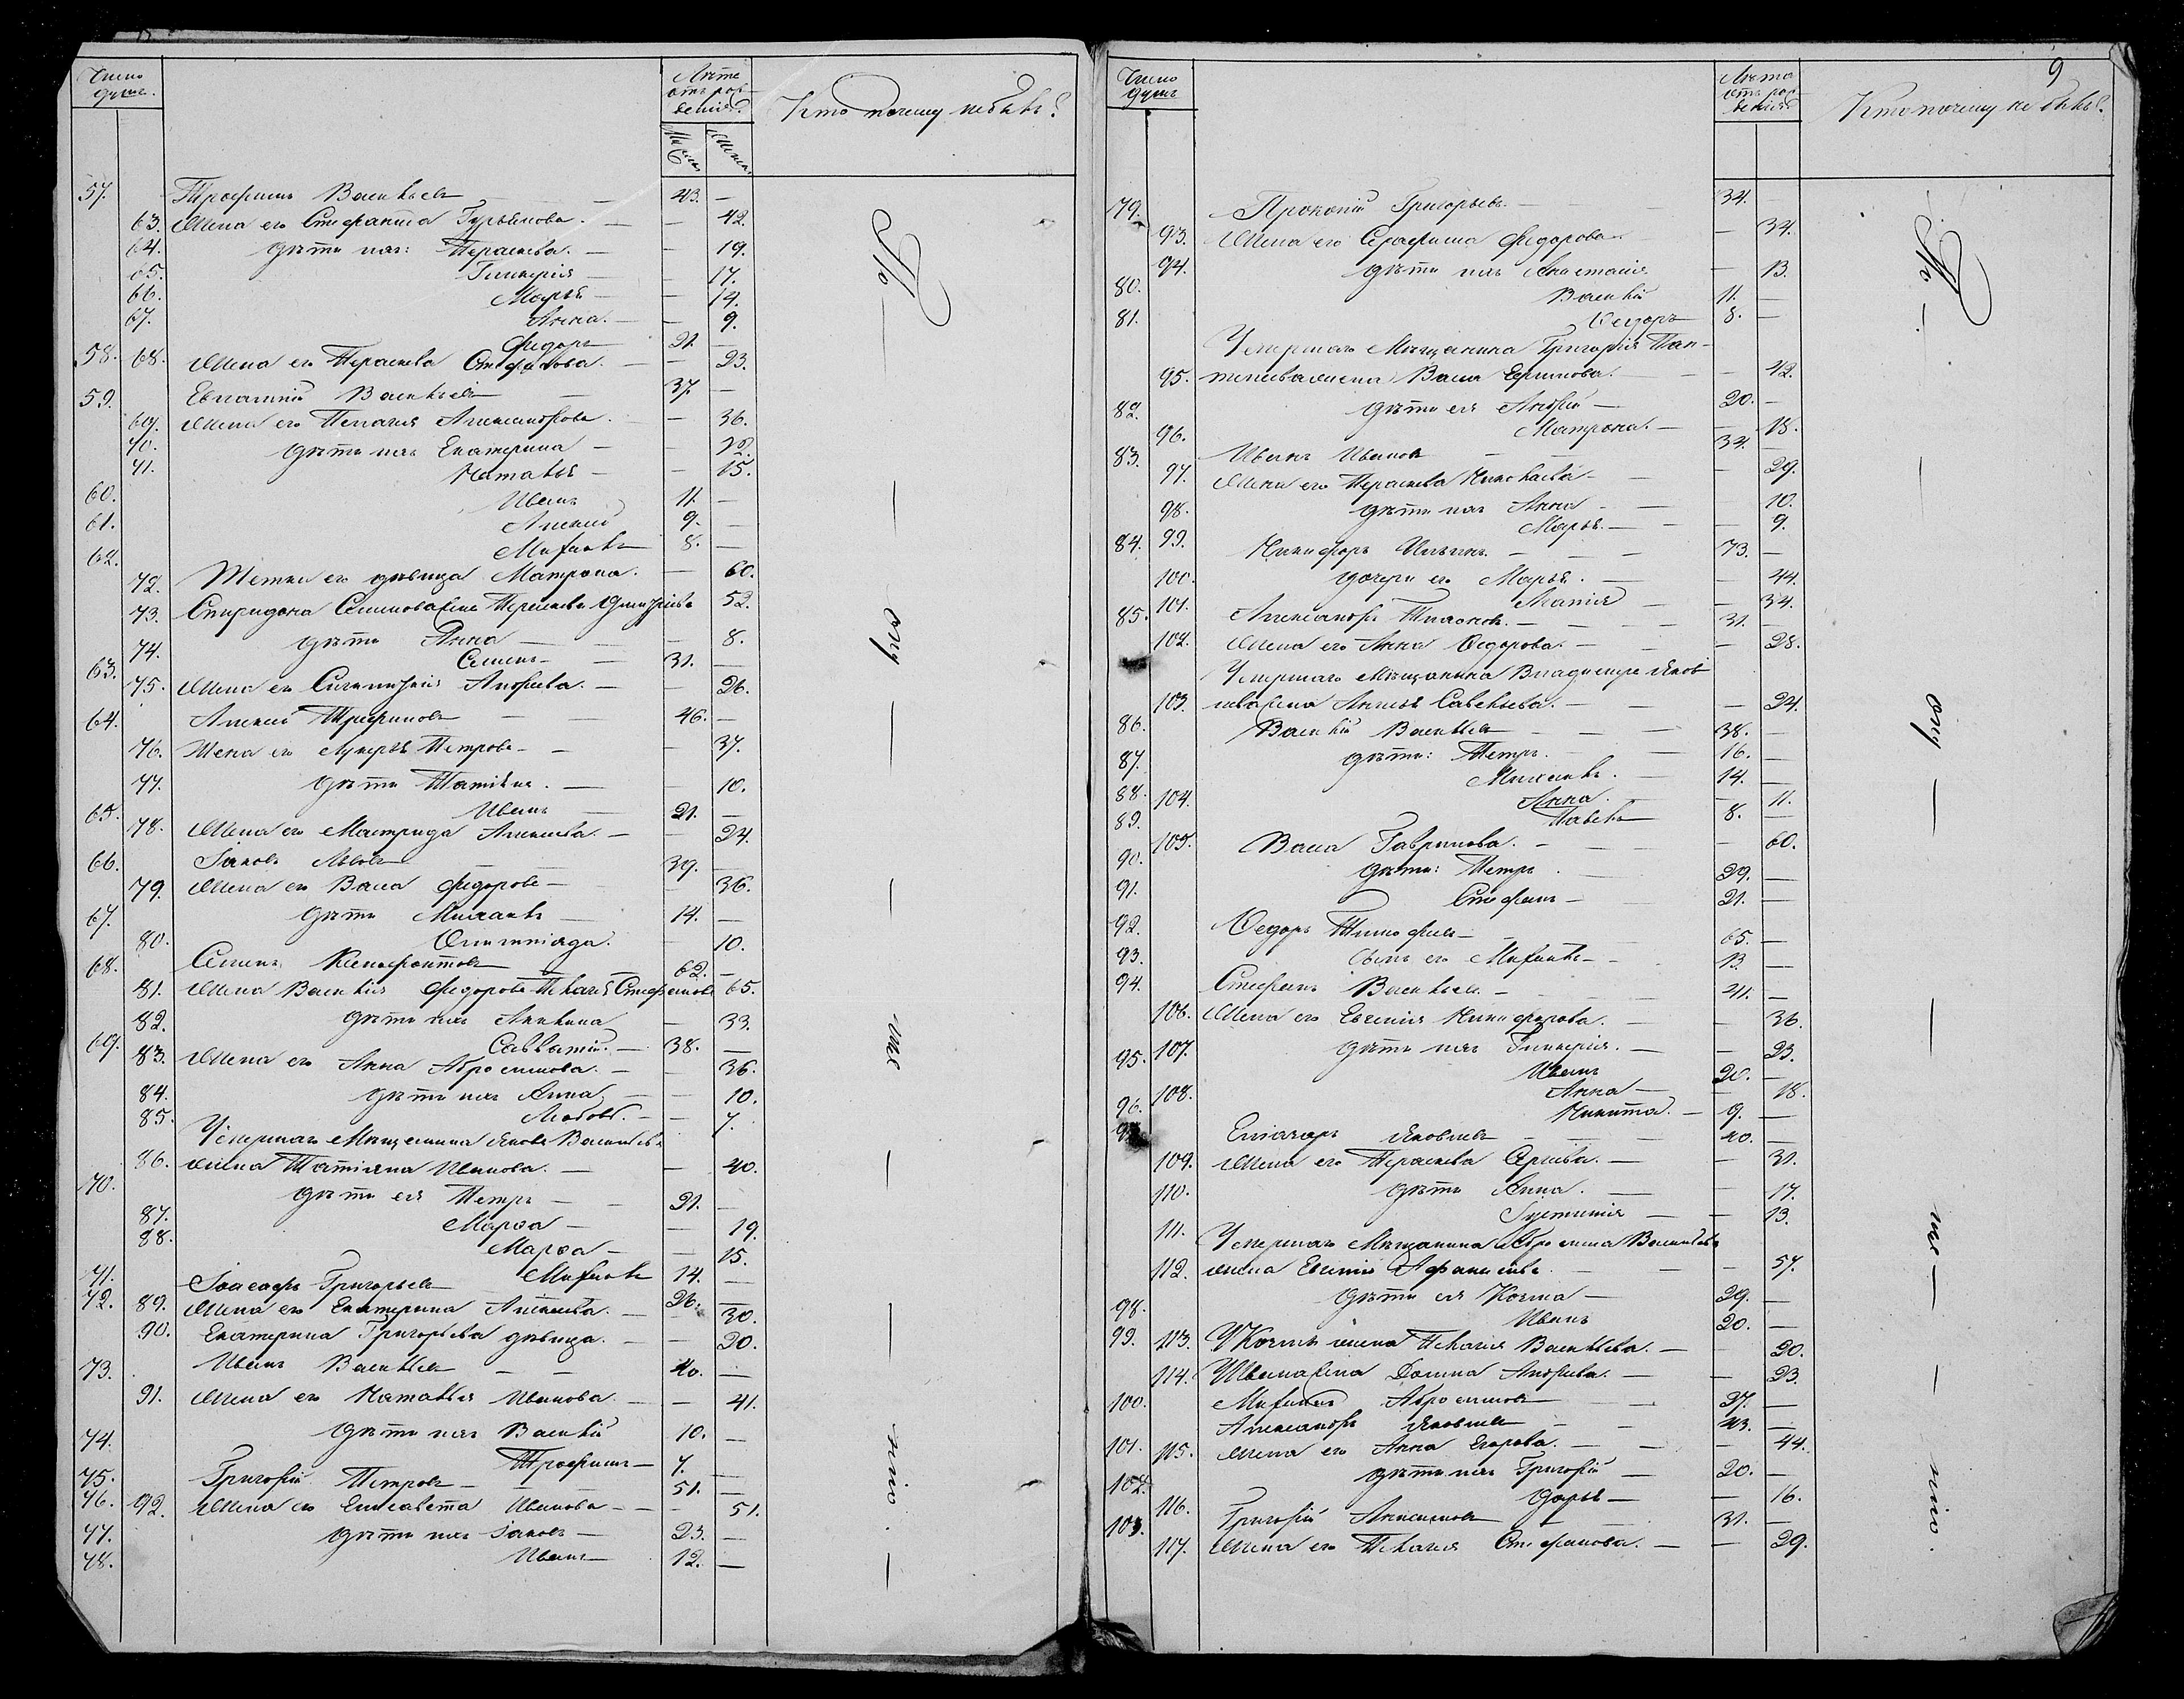 Число душъ.
Лѣта отъ рожденія.
Кто почему небылъ?
57. Трофимъ Васильевъ — 43. —
63. Жена его Стефанида Гурьянова. — — 42.
64. дѣти ихъ: Параскева. — — 19.
65. Гликерія — — 17.
66. Марья — — 14.
67. Анна. — — 9.
58. Федоръ 21. —
68. Жена его Параскева Стефанова. — — 23.
59. Евлампій Васильевъ — 37. —
69. Жена его Пелагія Александрова. — 36.
70. дѣти ихъ Екатерина — —
71. Наталья — — 15.
60. Иванъ 11. —
61. Алексѣй 9. —
62. Михаилъ 8. —
72. Тетка его дѣвица Матрона. — 60.
73. Спиридона Семенова жена Параскева 52.
74. дѣти Анна — — 8.
63. Семенъ — 31. —
75. Жена его Андреева. — — 26.
64. Алексѣй Трифоновъ — — 46. —
76. Жена его Лукерья Петрова — — 37.
77. дѣти Татіана. — — 10.
65. Иванъ — 21. —
78. Жена его Мастридія Алексѣева. — — 24.
66. Іаковъ Львовъ — — 39. —
79. Жена его Васса Федорова — — 36.
67. дѣти Михаилъ — 14. —
80. Олимпіада. — 10.
68. Семенъ Ксенофонтовъ 62. —
81. Жена Василія Федорова Пелагія Стефанова 65.
82. дѣти ихъ Акилина — 33.
69. Савватій. — 38. —
83. Жена его Анна Абросимова. — — 36.
84. дѣти ихъ Анна — — 10.
85. Любовь. — — 7.
Умершаго Мѣщанина Якова Васильева
86. жена Татіана Иванова. — — 40.
70. дѣти ея Петръ — 21. —
87. Марѳа — — 19.
88. Марѳа — — 15.
71. Михаилъ 14. —
72. Іоасафъ Григорьевъ 26. —
89. Жена его Екатерина Алексѣева. — 30.
90. Екатерина Григорьева дѣвица. — — 20.
73. Иванъ Васильевъ — — 40. —
91. Жена его Наталья Иванова. — — 41.
74. дѣти ихъ Василій 10. —
75. Трофимъ — 7. —
76. Григорій Петровъ — 51. —
92. Жена его Елисавета Иванова — — 51.
77. дѣти ихъ Іаковъ — 23. —
78. Иванъ 12. —
По — — — ону — — — же — — — нію. —
9
Число душъ
Лѣта отъ рожденія
Кто почему не былъ?
79. Прокопій Григорьевъ. — 34. —
93. Жена его Серафима Федорова — — 34.
94. дѣти ихъ Анастасія — 13.
80. Василій 11. —
81. Ѳедоръ 8. —
Умершаго Мѣщанина Григорія Пан-
95. телѣева жена Васса Ефимова. — — 42.
82. дѣти ея Андрей — 20. —
96. Матрона. — — 18.
83. Иванъ Ивановъ — — 34. —
97. Жена его Параскева Николаева — — 29.
98. дѣти ихъ Анна — — 10.
99. Марья. — — 9.
84. Никифоръ Ильинъ. — — — 73. —
100. дочери его Марья. — — 44.
101. Агапія — — 34.
85. Александръ Тихоновъ. — — — 31. —
102. Жена его Анна Ѳедорова. — — — 28.
Умершаго мѣщанина Владимира Яков-
103. лева жена Савельева. — — — 24.
86. Василій Васильевъ — — — 38. —
87. дѣти: Петръ. — — 16. —
88. Михаилъ. — 14. —
104. Анна. — — 11.
89. Павелъ 8. —
105. Васса Гаврилова. — — — 60.
90. дѣти: Петръ. — 29. —
91. Стефанъ — 21. —
92. Ѳедоръ Тимофеевъ — — — 65. —
93. Сынъ его Михаилъ — — 13. —
94. Стефанъ Васильевъ. — — — 41. —
106. Жена его Евгенія Никифорова. — — 36.
107. дѣти ихъ Гликерія. — — 23.
95. Иванъ 20. —
108. Анна — — 18.
96. Никита. — 9. —
97. Еліазаръ Яковлевъ — — — 40. —
109. Жена его Параскева Сергѣева. — — 31.
110. дѣти Анна. — — 17.
111. Іустинія — — 13.
Умершаго Мѣщанина Абросима Васильева
112. жена Евгенія Афанасьева. — — — 57.
98. дѣти ея Козма — 29. —
99. Иванъ 20. —
113. У Козмы жена Пелагія Васильева. — — 20.
114. У Ивана жена Домна Андреева. — — 23.
100. Михаилъ Абросимовъ — — 27. —
101. Александръ Яковлевъ — — 43. —
115. Жена его Анна Егорова. — — — 44.
102. дѣти ихъ Григорій — 20. —
116. Дарья — — 16.
103. Григорій Анисимовъ — — 31. —
117. Жена его Пелагія Стефанова. — — 29.
По — . — ону — — же — — нію.